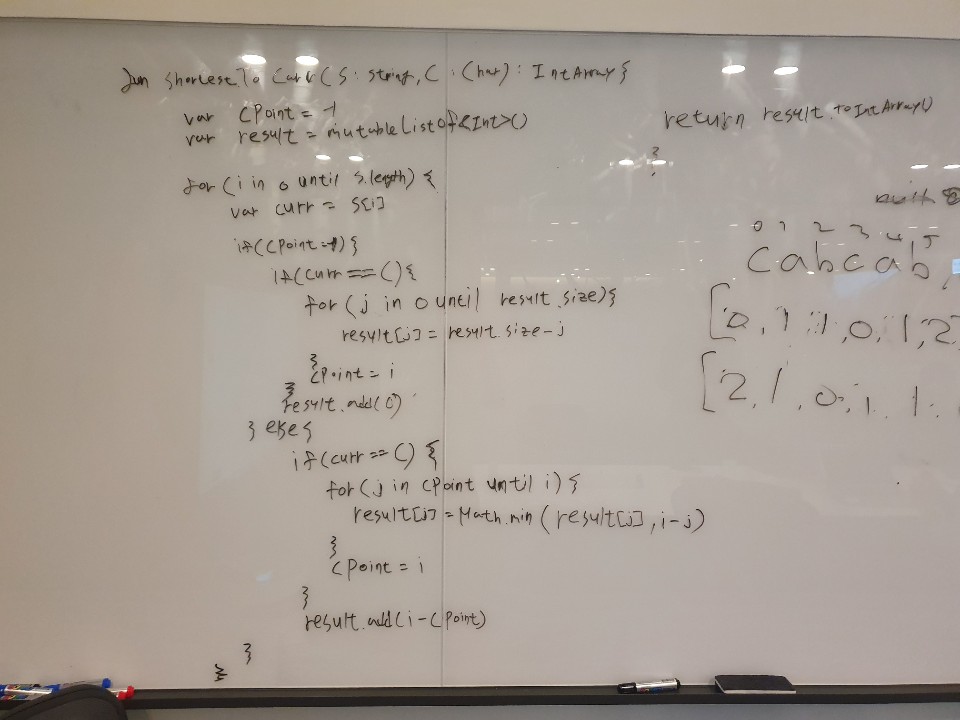 fun shortestToCarr(S: string, C: Char): IntArray {
var cPoint = -1
var result = mutableListOf<Int>()
for (i in 0 until s.length) {
var curr = S[i]
if(cPoint == -1) {
if(curr == C) {
for (j in 0 until result.size) {
result[j] = result.size-j
}
cPoint = i
}
result.add(0)
} else {
if(curr == C) {
for (j in cPoint until i) {
result[j] = Math.min(result[j], i-j)
}
cPoint = i
}
result.add(i-cPoint)
}
}
return result.toIntArray()
}
0 1 2 3 4 5
cabcab,
[0, 1, 1, 0, 1, 2
[2, 1, 0, 1, 1,